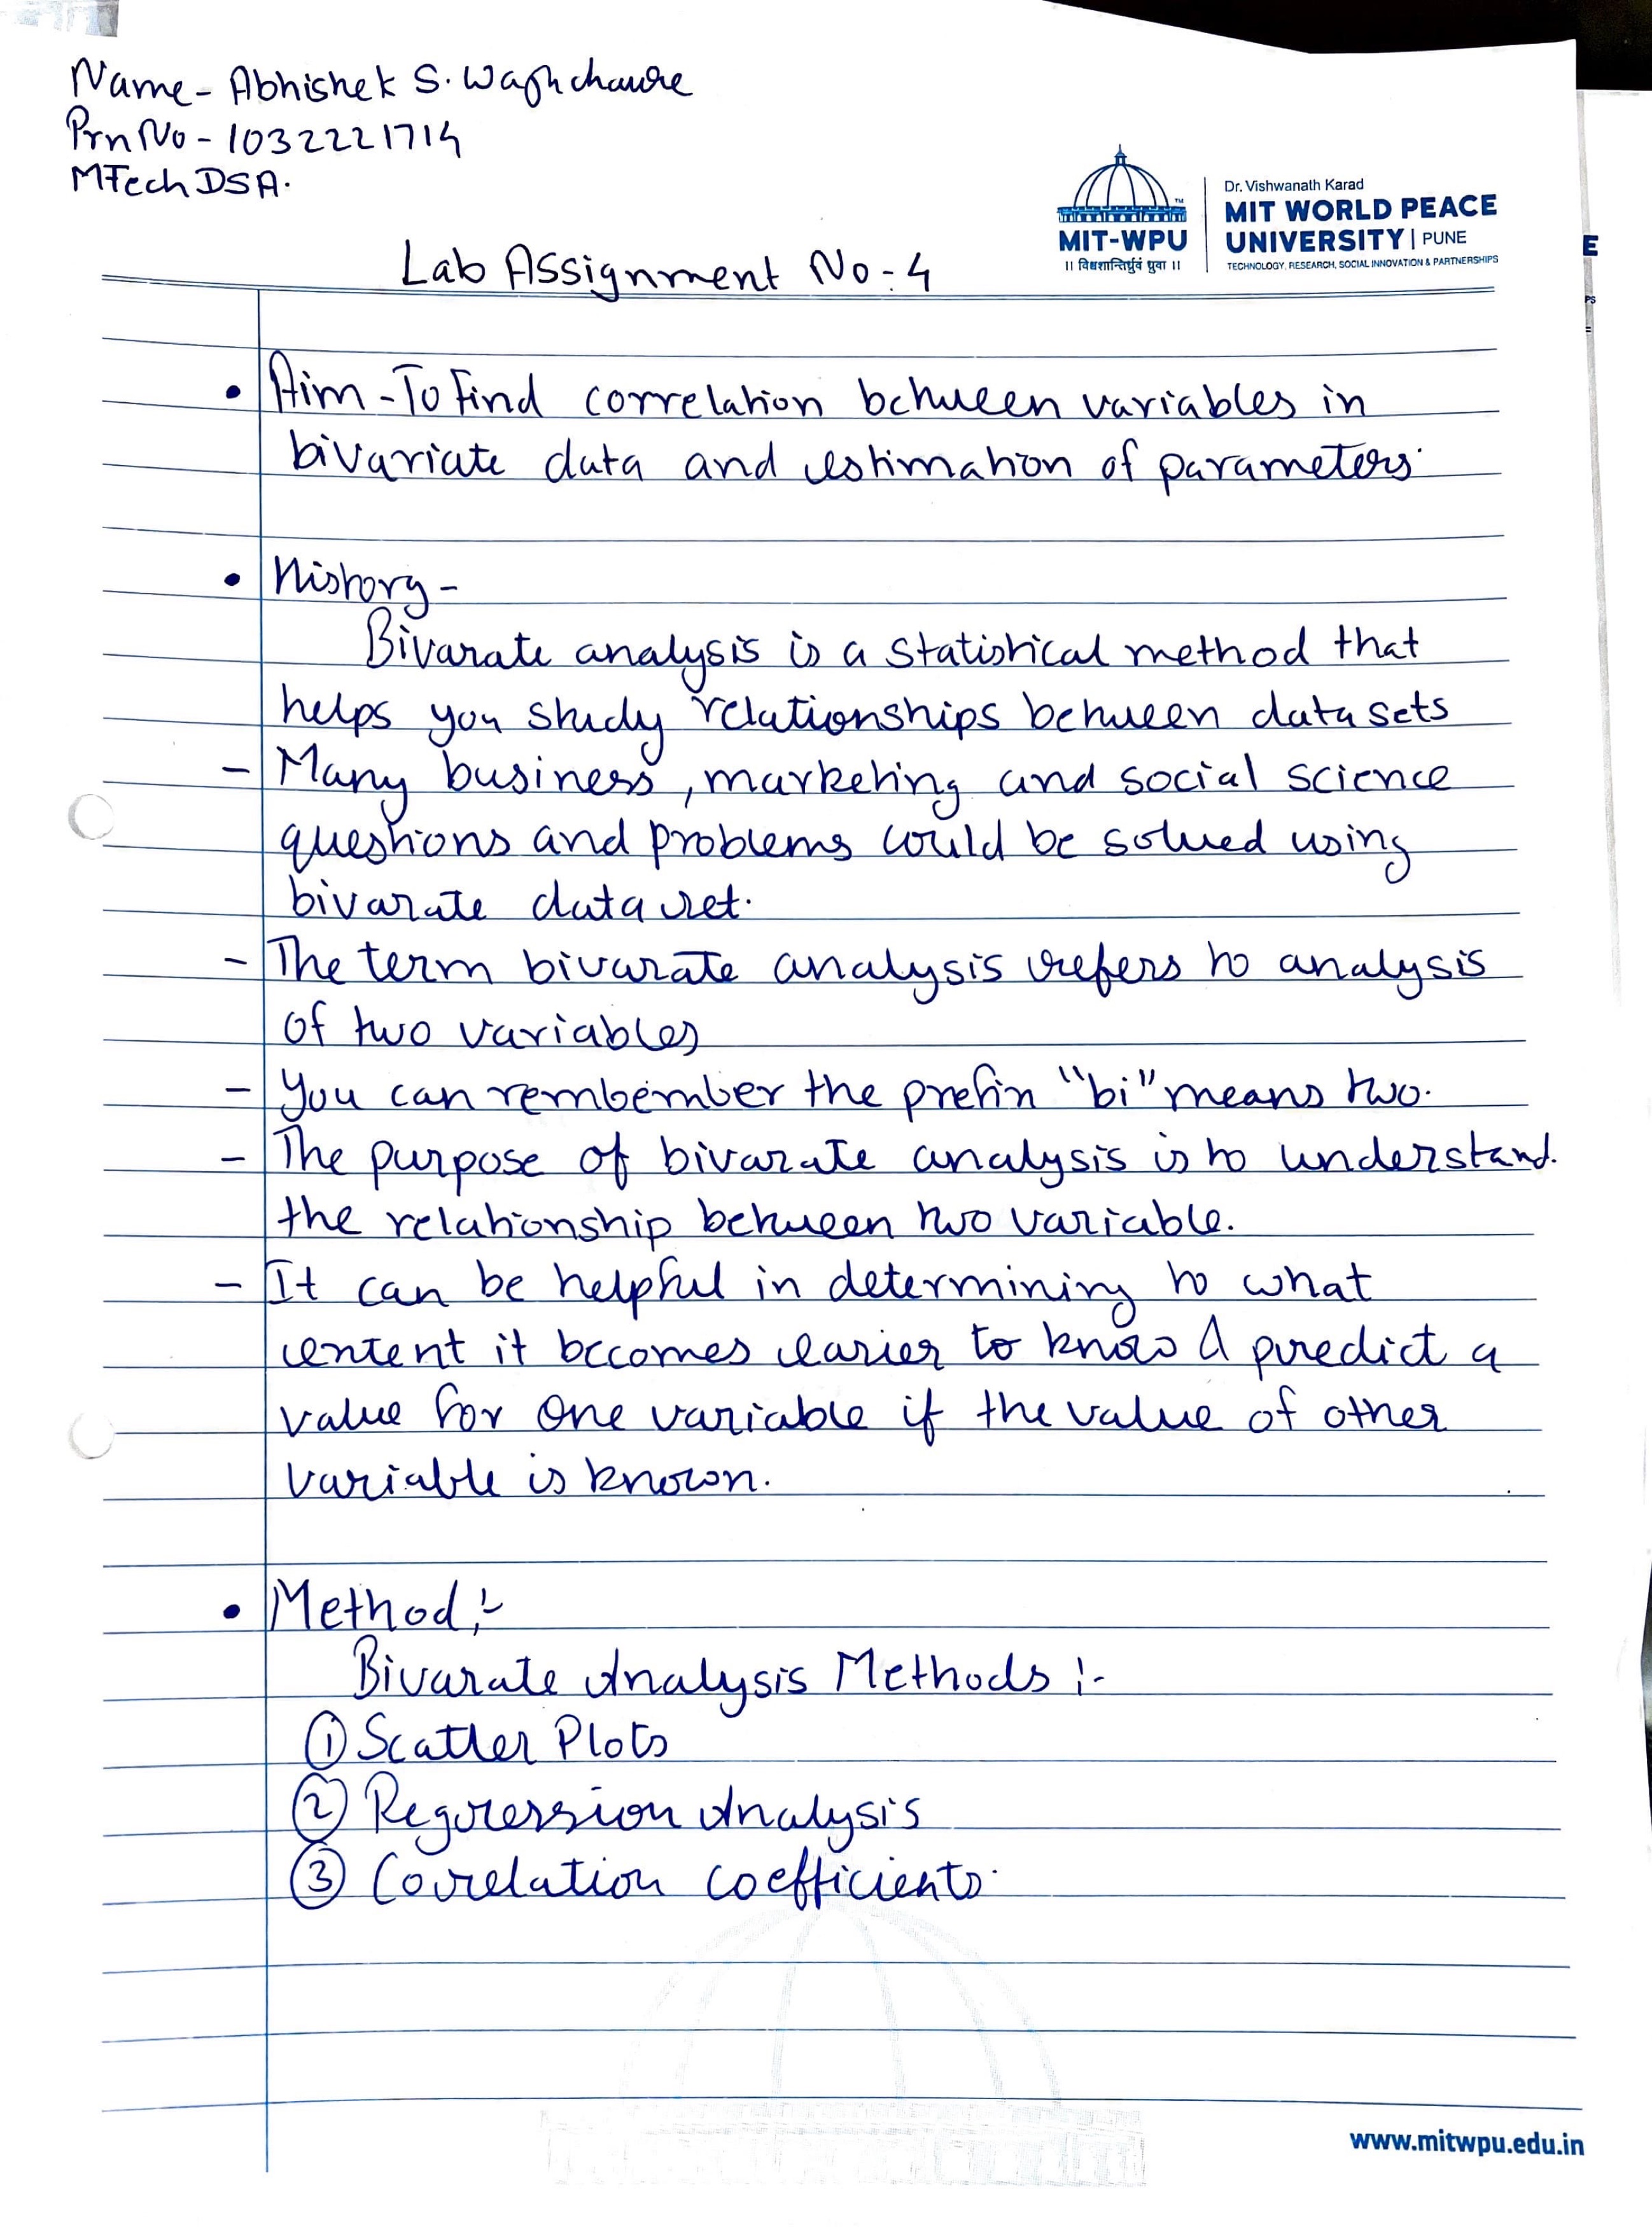 Name - Abhishek S. Waghchaure
Prn No - 1032221714
MTech DSA.
Dr. Vishwanath Karad
MIT WORLD PEACE
UNIVERSITY | PUNE
TECHNOLOGY, RESEARCH, SOCIAL INNOVATION & PARTNERSHIPS
TM
MIT-WPU
॥ विश्वशान्तिर्ध्रुवं ध्रुवा ॥
E
PS
Lab Assignment No:4
• Aim - To Find correlation between variables in
bivariate data and estimation of parameters.
• History -
Bivarate analysis is a statistical method that
helps you study relationships between data sets
- Many business, marketing and social science
questions and problems could be solved using
bivarate data set.
- The term bivarate analysis refers to analysis
of two variables
- You can rembember the prefix "bi" means two.
- The purpose of bivarate analysis is to understand.
the relationship between two variable.
- It can be helpful in determining to what
extent it becomes easier to know & predict a
value for one variable if the value of other
variable is known.
• Method :-
Bivarate Analysis Methods :-
① Scatter Plots
② Regression Analysis
③ Correlation coefficients.
www.mitwpu.edu.in